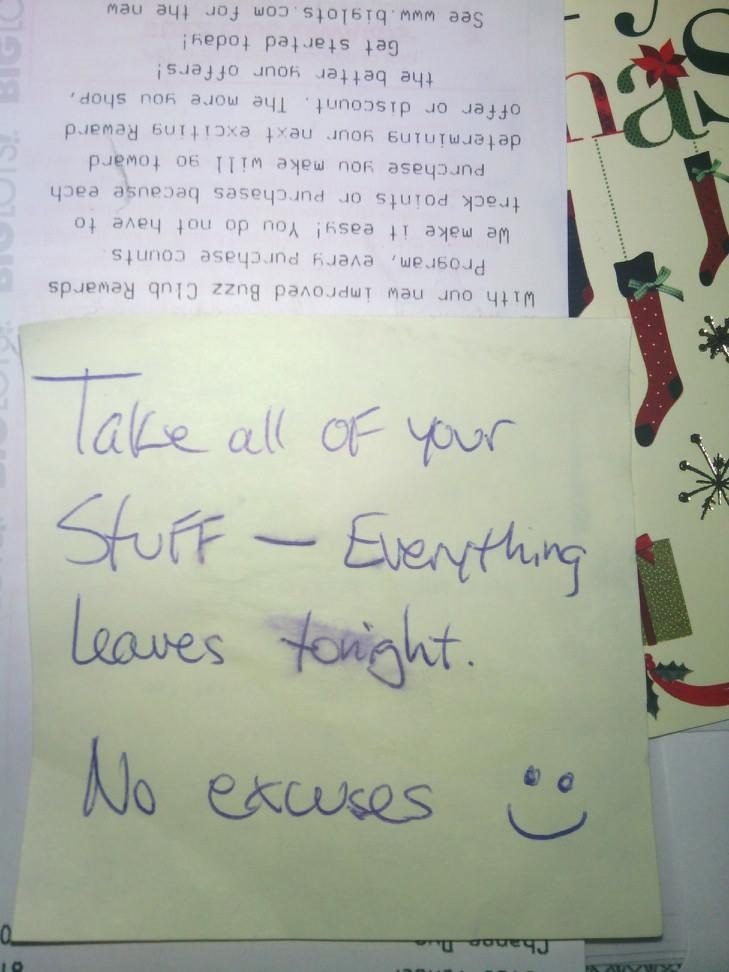 Take all of your
Stuff — Everything
leaves tonight.
No excuses
With our new improved Buzz Club Rewards
Program, every purchase counts.
We make it easy! You do not have to
track points or purchases because each
purchase you make will go toward
determining your next exciting Reward
offer or discount. The more you shop,
the better your offers!
Get started today!
See www.biglots.com for the new
Change Due
mas